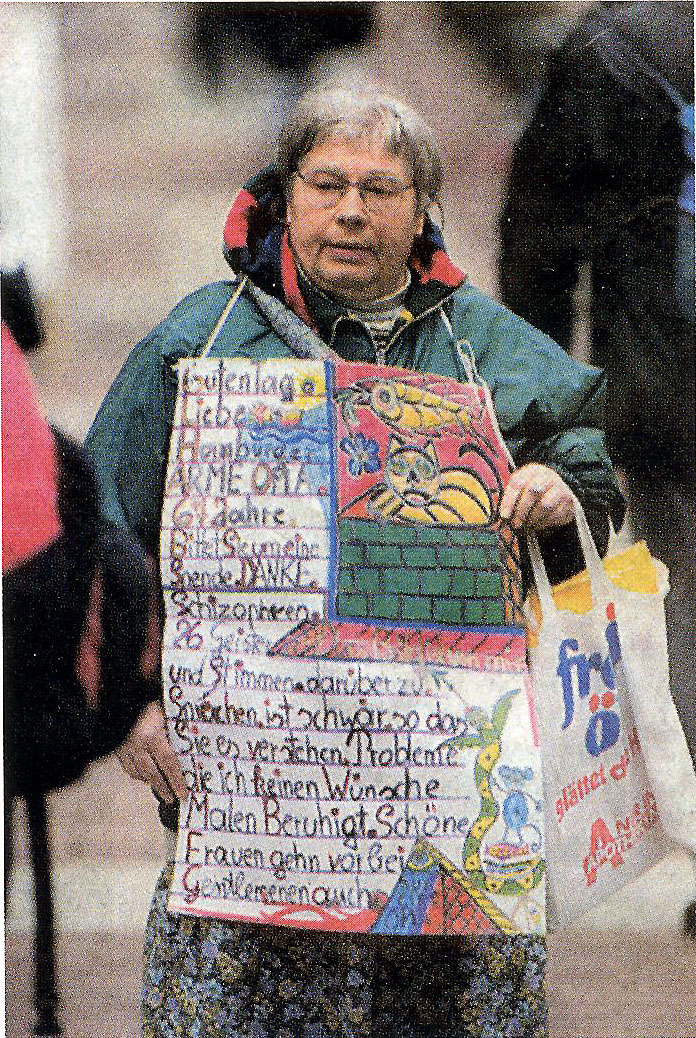 Gutentag
Liebe
Hamburger
ARME OMA.
Jahre.
Bittet Sie um eine
Spende. DANKE.
Schizophren.
96 Geister
und Stimmen. darüber zu
Sprechen. ist schwär. so das
Sie es verstehen. Probleme
die ich keinen Wünsche
Malen Beruhigt. Schöne
Frauen gehn vorbei
Gentlemenen auch
ö
glättet